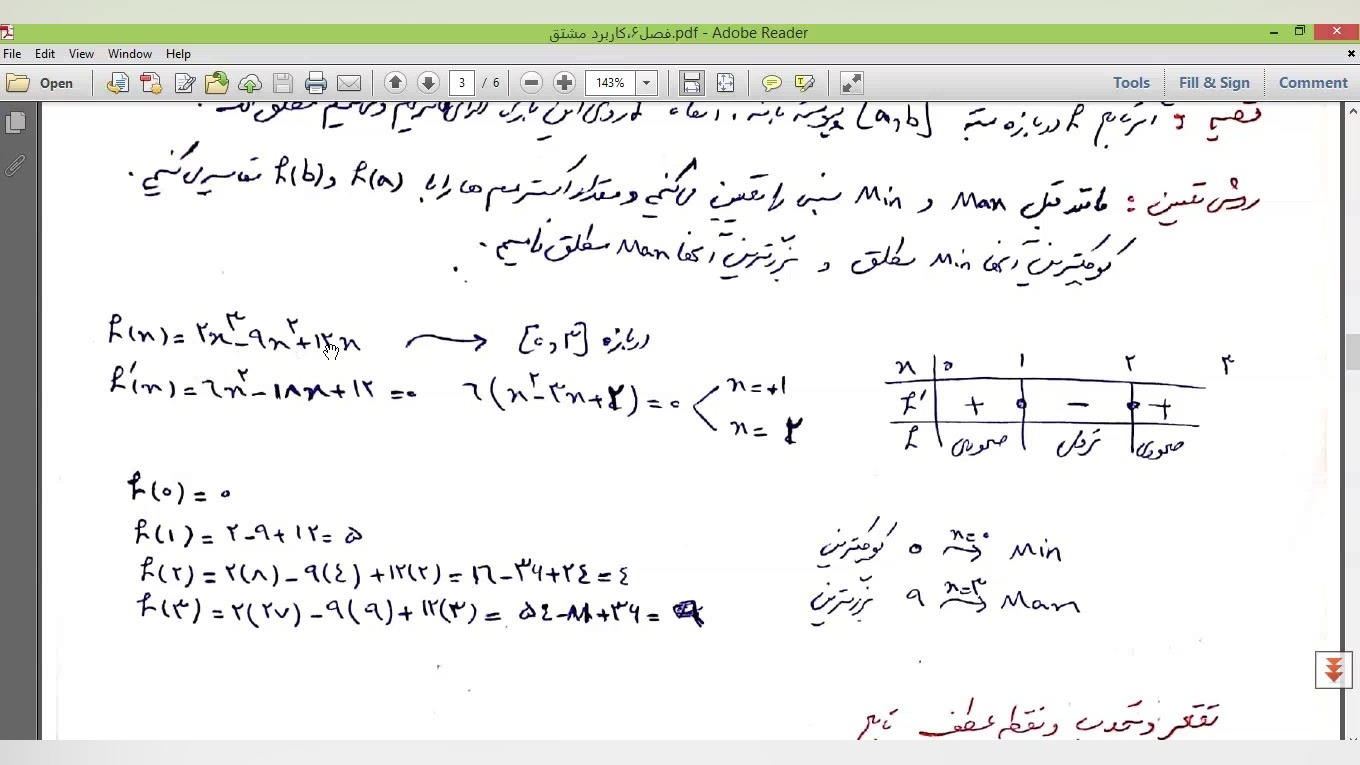 فصل۶،کاربرد مشتق.pdf - Adobe Reader
File Edit View Window Help
Open 3 / 6 143% Tools Fill & Sign Comment
قضیه : اگر تابع f در بازه بسته [a,b] پیوسته باشد ، آنگاه
روش تعیین : مانند قبل Max و Min نسبی را تعیین می‌کنیم و مقدار اکسترمم ها را با f(a) و f(b) مقایسه می‌کنیم .
کوچکترین آنها Min مطلق و بزرگترین آنها Max مطلق نامیم .
f(x) = ۲x^۳ - ۹x^۲ + ۱۲x → [۰,۳] در بازه
f'(x) = ۶x^۲ - ۱۸x + ۱۲ = ۰ ۶(x^۲ - ۳x + ۲) = ۰ x = +۱
x = ۲
x ۰ ۱ ۲ ۳
f' + ۰ - ۰ +
f صعودی نزولی صعودی
f(۰) = ۰
f(۱) = ۲ - ۹ + ۱۲ = ۵
f(۲) = ۲(۸) - ۹(۴) + ۱۲(۲) = ۱۶ - ۳۶ + ۲۴ = ۴
f(۳) = ۲(۲۷) - ۹(۹) + ۱۲(۳) = ۵۴ - ۸۱ + ۳۶ = ۹
کوچکترین ۰ x=۰ → Min
بزرگترین ۹ x=۳ → Max
تقعر و تحدب و نقطه عطف تابع